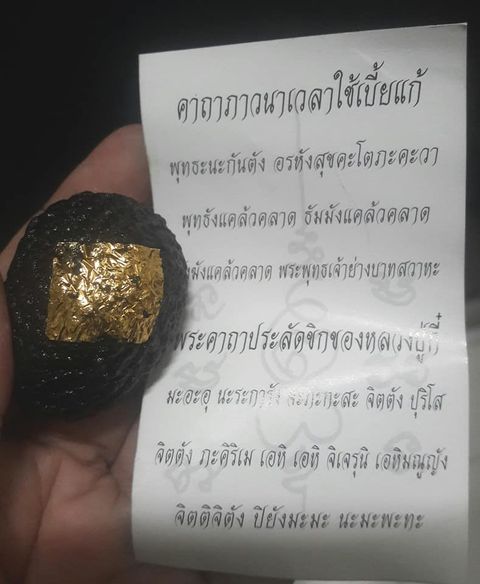 คาถาภาวนาเวลาใช้เบี้ยแก้
พุทธะนะกันตัง อรหังสุขคะโตภะคะวา
พุทธังแคล้วคลาด ธัมมังแคล้วคลาด
มังแคล้วคลาด พระพุทธเจ้าย่างบาทสวาหะ
พระคาถาประลัดขิกของหลวงปู่กี๋
มะอะอุ นะระการัง จิตตัง ปุริโส
จิตตัง ภะคิริเม เอหิ เอหิ จิเจรุนิ เอหิมณูญัง
จิตติจิตัง ปิยังมะมะ นะมะพะทะ